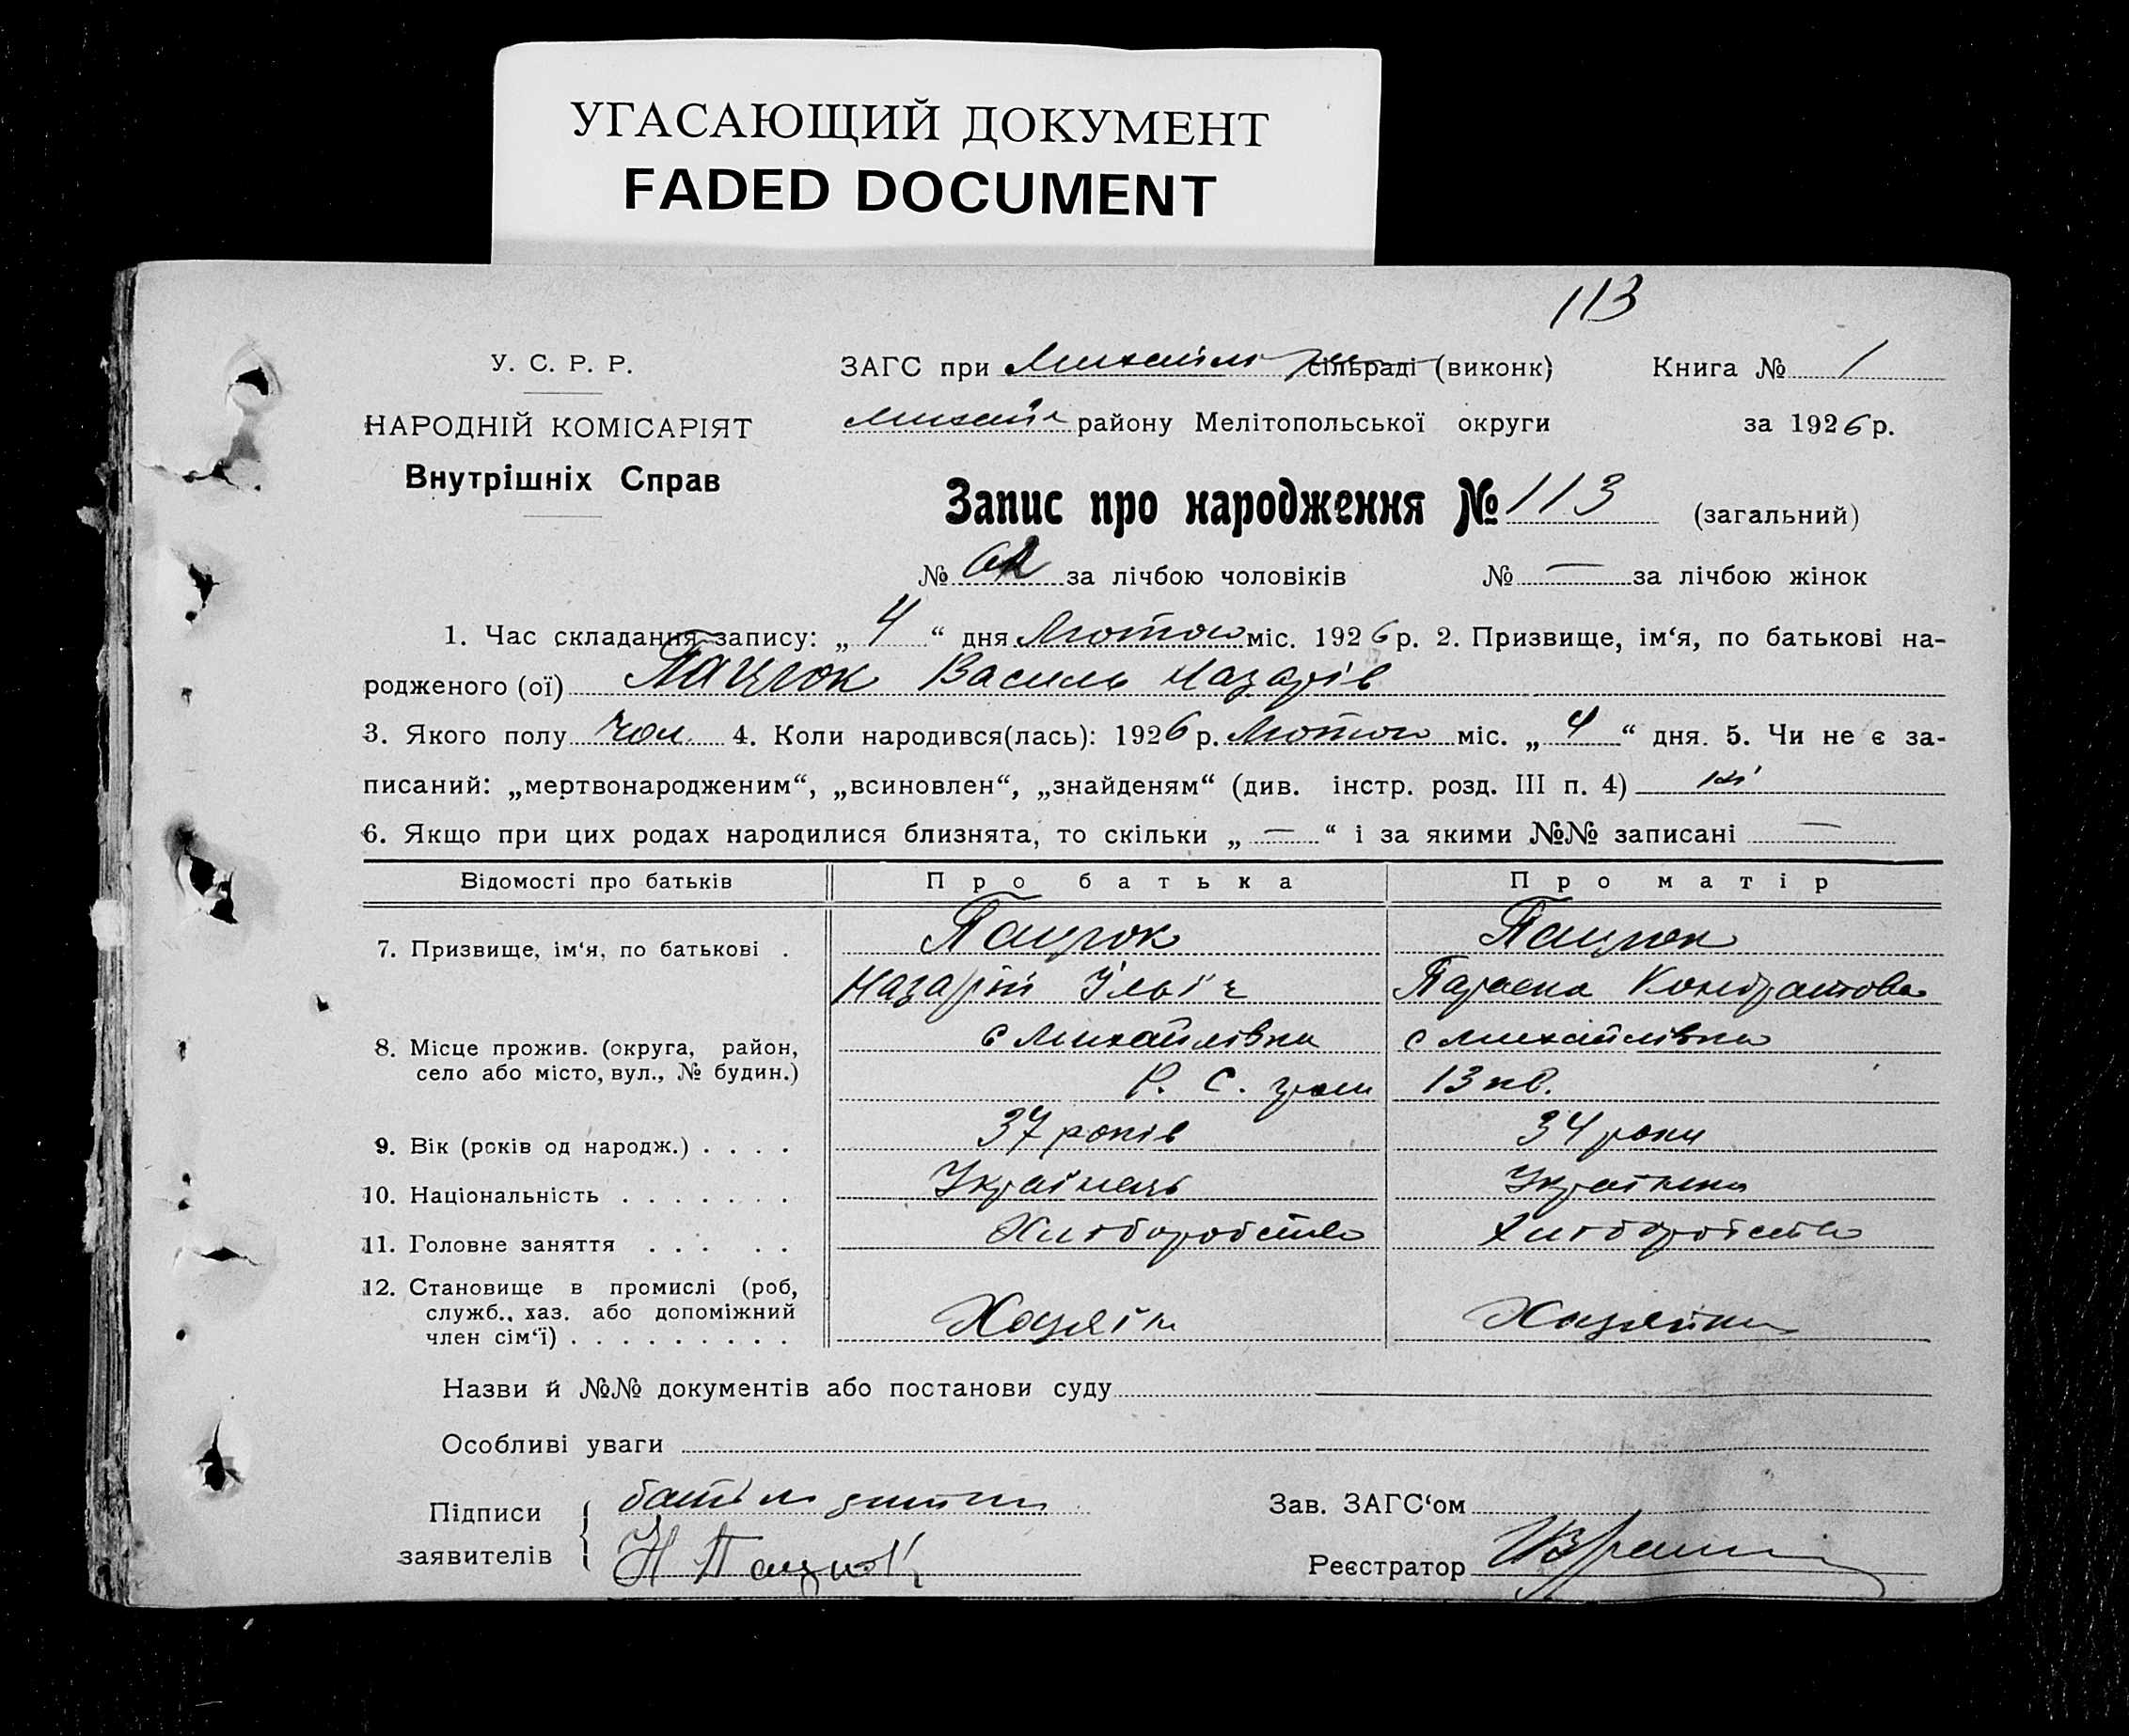 УГАСАЮЩИЙ ДОКУМЕНТ
FADED DOCUMENT
113
У. С. Р. Р.
НАРОДНІЙ КОМІСАРІЯТ
Внутрішніх Справ
ЗАГС при Михайлів сільраді (виконк) Книга № 1
Михайл району Мелітопольської округи за 1926 р.
Запис про народження № 113 (загальний)
№ за лічбою чоловіків № — за лічбою жінок
1. Час складання запису: „ 4 “ дня Лютого міс. 1926 р. 2. Призвище, ім‘я, по батькові на-
родженого (ої) Пацюк Василь Назарів
3. Якого полу чол. 4. Коли народився(лась): 1926 р. Лютого міс. „ 4 “ дня. 5. Чи не є за-
писаний: „мертвонародженим“, „всиновлен“, „знайденям“ (див. інстр. розд. III п. 4) ні
6. Якщо при цих родах народилися близнята, то скільки „ — “ і за якими №№ записані —
Відомості про батьків Про батька Про матір
7. Призвище, ім‘я, по батькові . Пацюк Пацюк
Назарій Ілліч Параска Кондратова
8. Місце прожив. (округа, район, с Михайлівка с Михайлівка
село або місто, вул., № будин.) Р. С. гром 13 кв.
9. Вік (років од народж.) . . . . 37 років 34 роки
10. Національність . . . . . . . Українець Українка
11. Головне заняття . . . . . Хліборобство Хліборобство
12. Становище в промислі (роб,
служб., хаз. або допоміжний
член сім‘ї) . . . . . . . . . Хазяїн Хазяйка
Назви й №№ документів або постанови суду
Особливі уваги
Підписи батько дитини Зав. ЗАГС‘ом
заявителів Н Пацюк Реєстратор